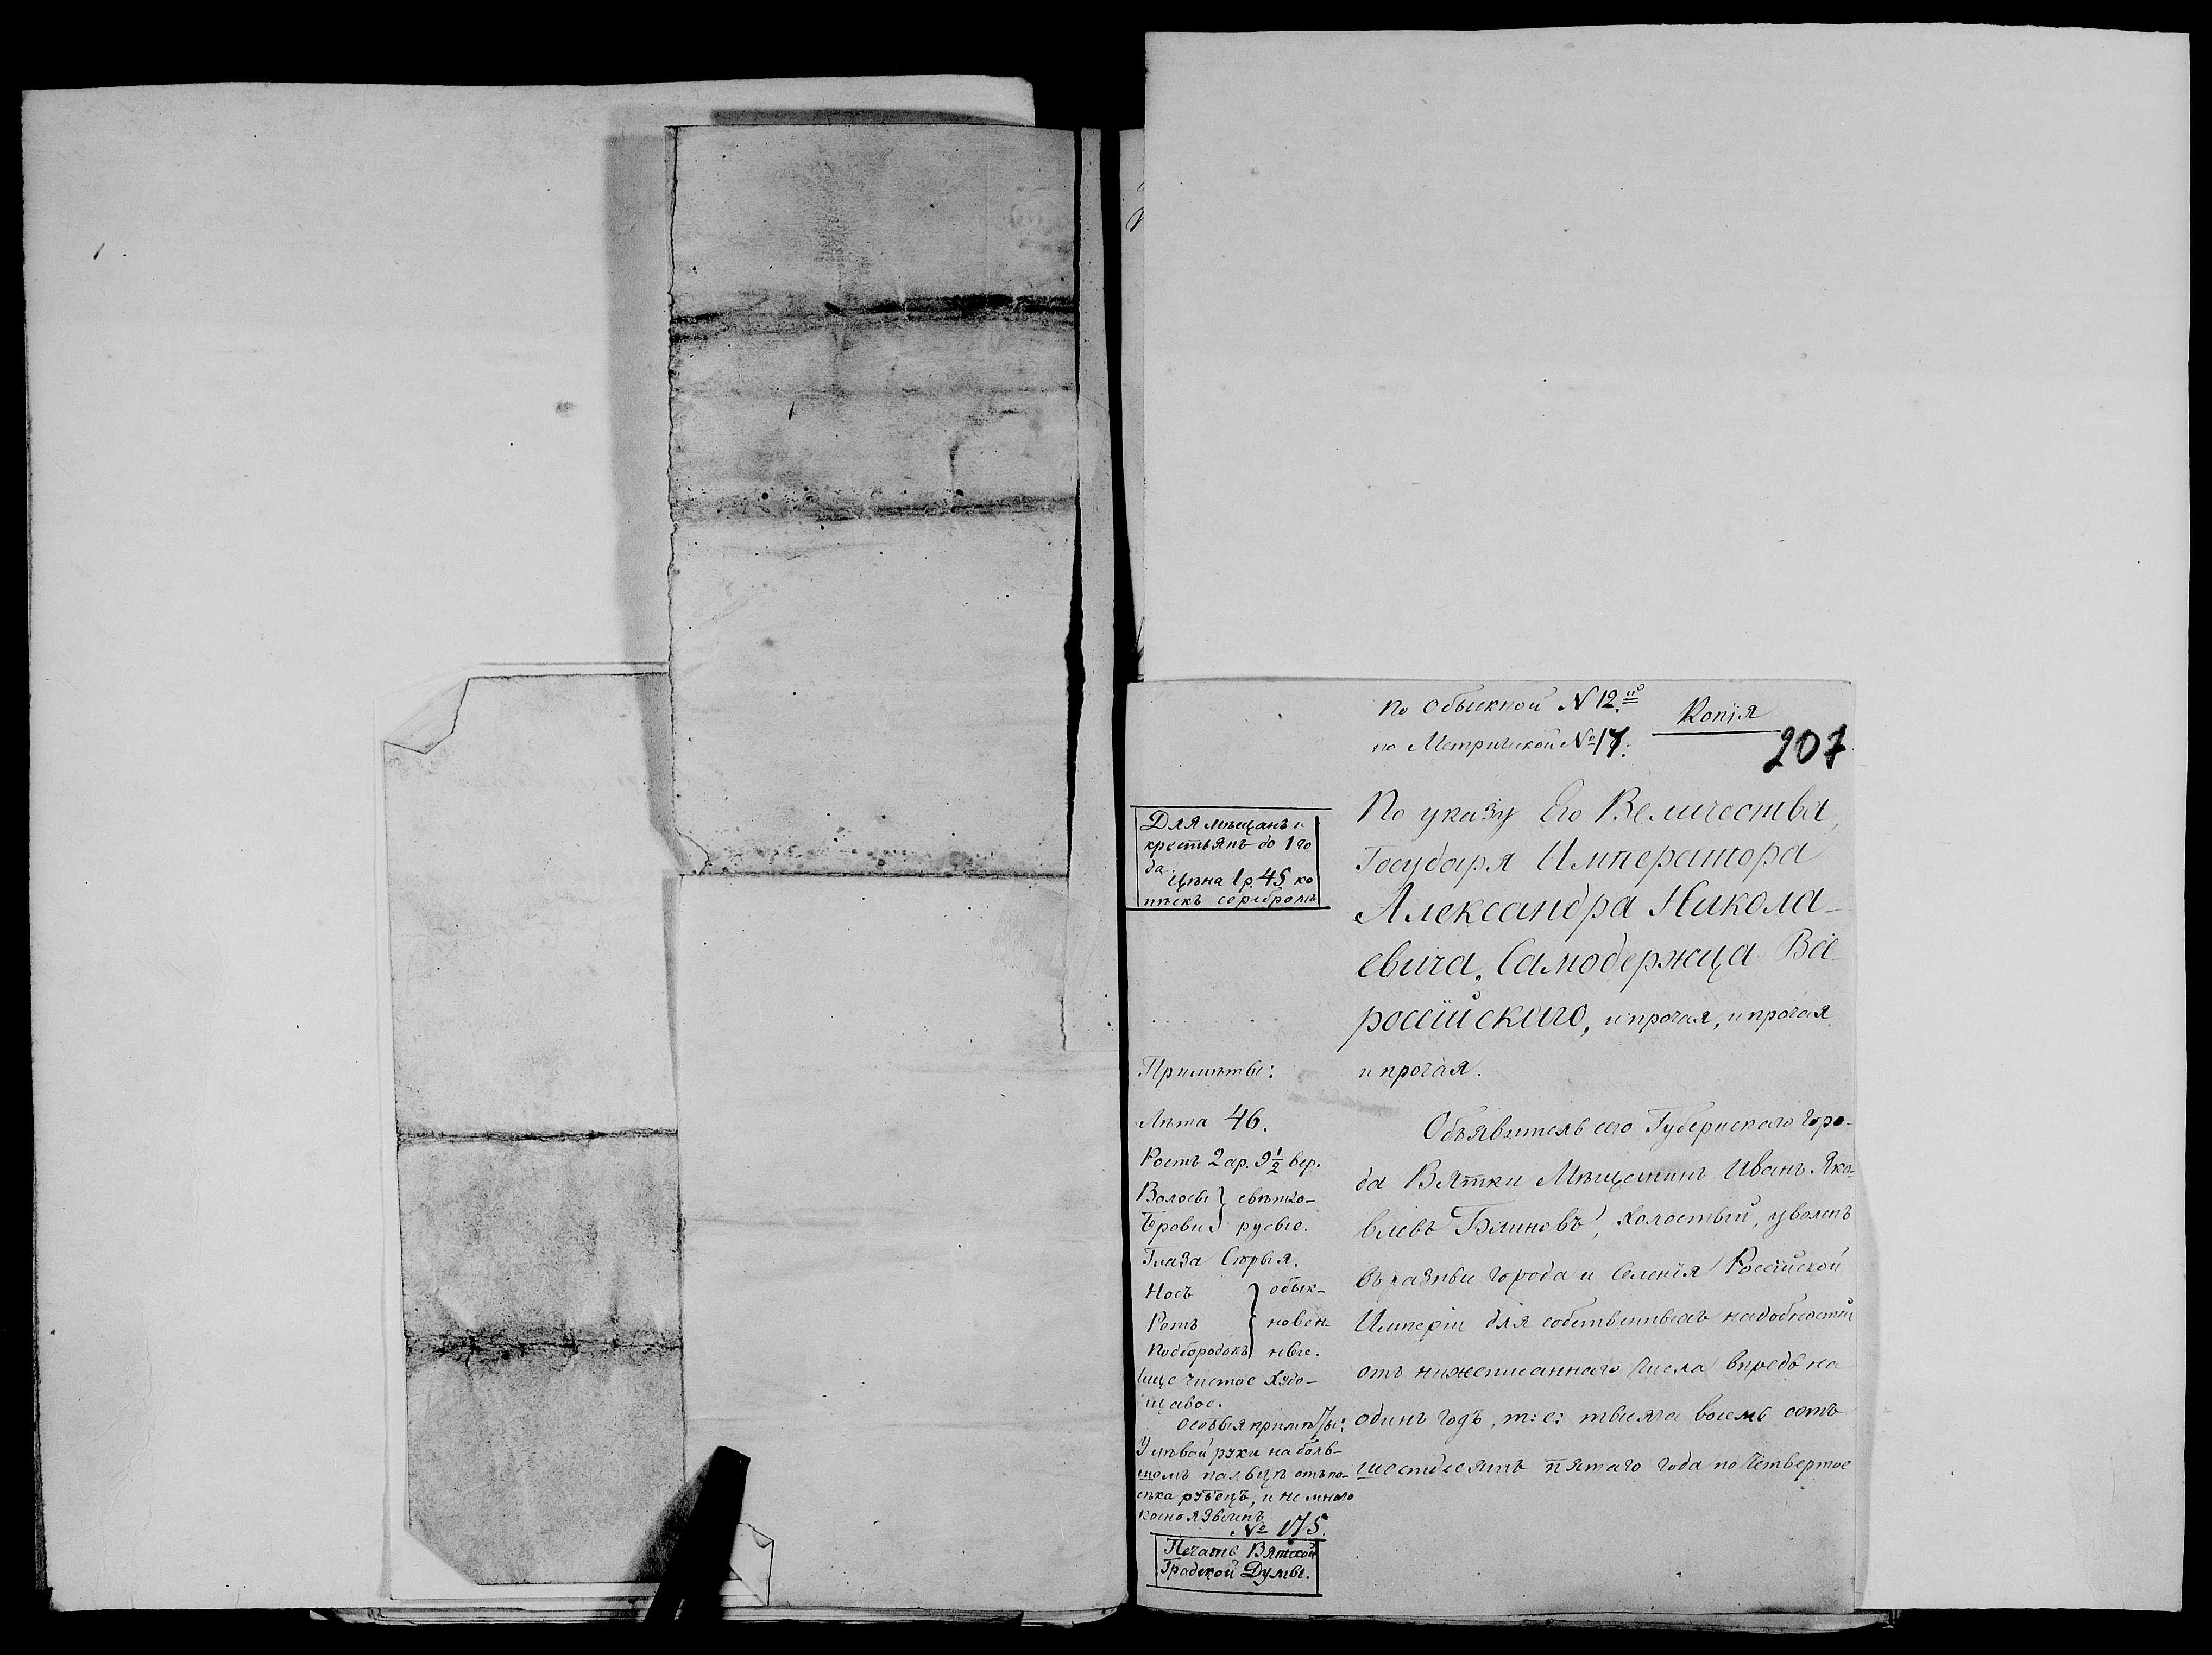 По Обыскной N 12.
Копія
по Метрической № 17.
207
Для мѣщанъ и
крестьянъ до 1 го
да.
Цѣна 1 р. 45 ко
пѣекъ серебромъ
По указу Его Величества,
Государя Императора
Александра Никола-
евича, Самодержца Все-
россійскаго, и прочая, и прочая
и прочая.
Примѣты:
Лѣта 46.
Ростъ 2 ар. 9 1/2 вер.
Волосы } свѣтло-
Брови } русые.
Глаза Сѣрыя.
Носъ } обык-
Ротъ } новен-
Подбородокъ } ные.
Лице чистое худо-
щавое.
Особыя примѣты:
У лѣвой руки на боль-
шомъ пальцѣ отъ по-
сѣка рубецъ, и не много
косноязыченъ
№ 175.
Печать Вятской
Градской Думы.
Объявитель сего Губернскаго горо-
да Вятки Мѣщанинъ Иванъ Яко-
влевъ Блиновъ, холостый, уволенъ
въ разные города и селенія Россійской
Имперіи для собственныхъ надобностей
отъ нижеписаннаго числа впредь на
одинъ годъ, т: е: тысяча восемь сотъ
шестьдесятъ пятаго года по Четвертое